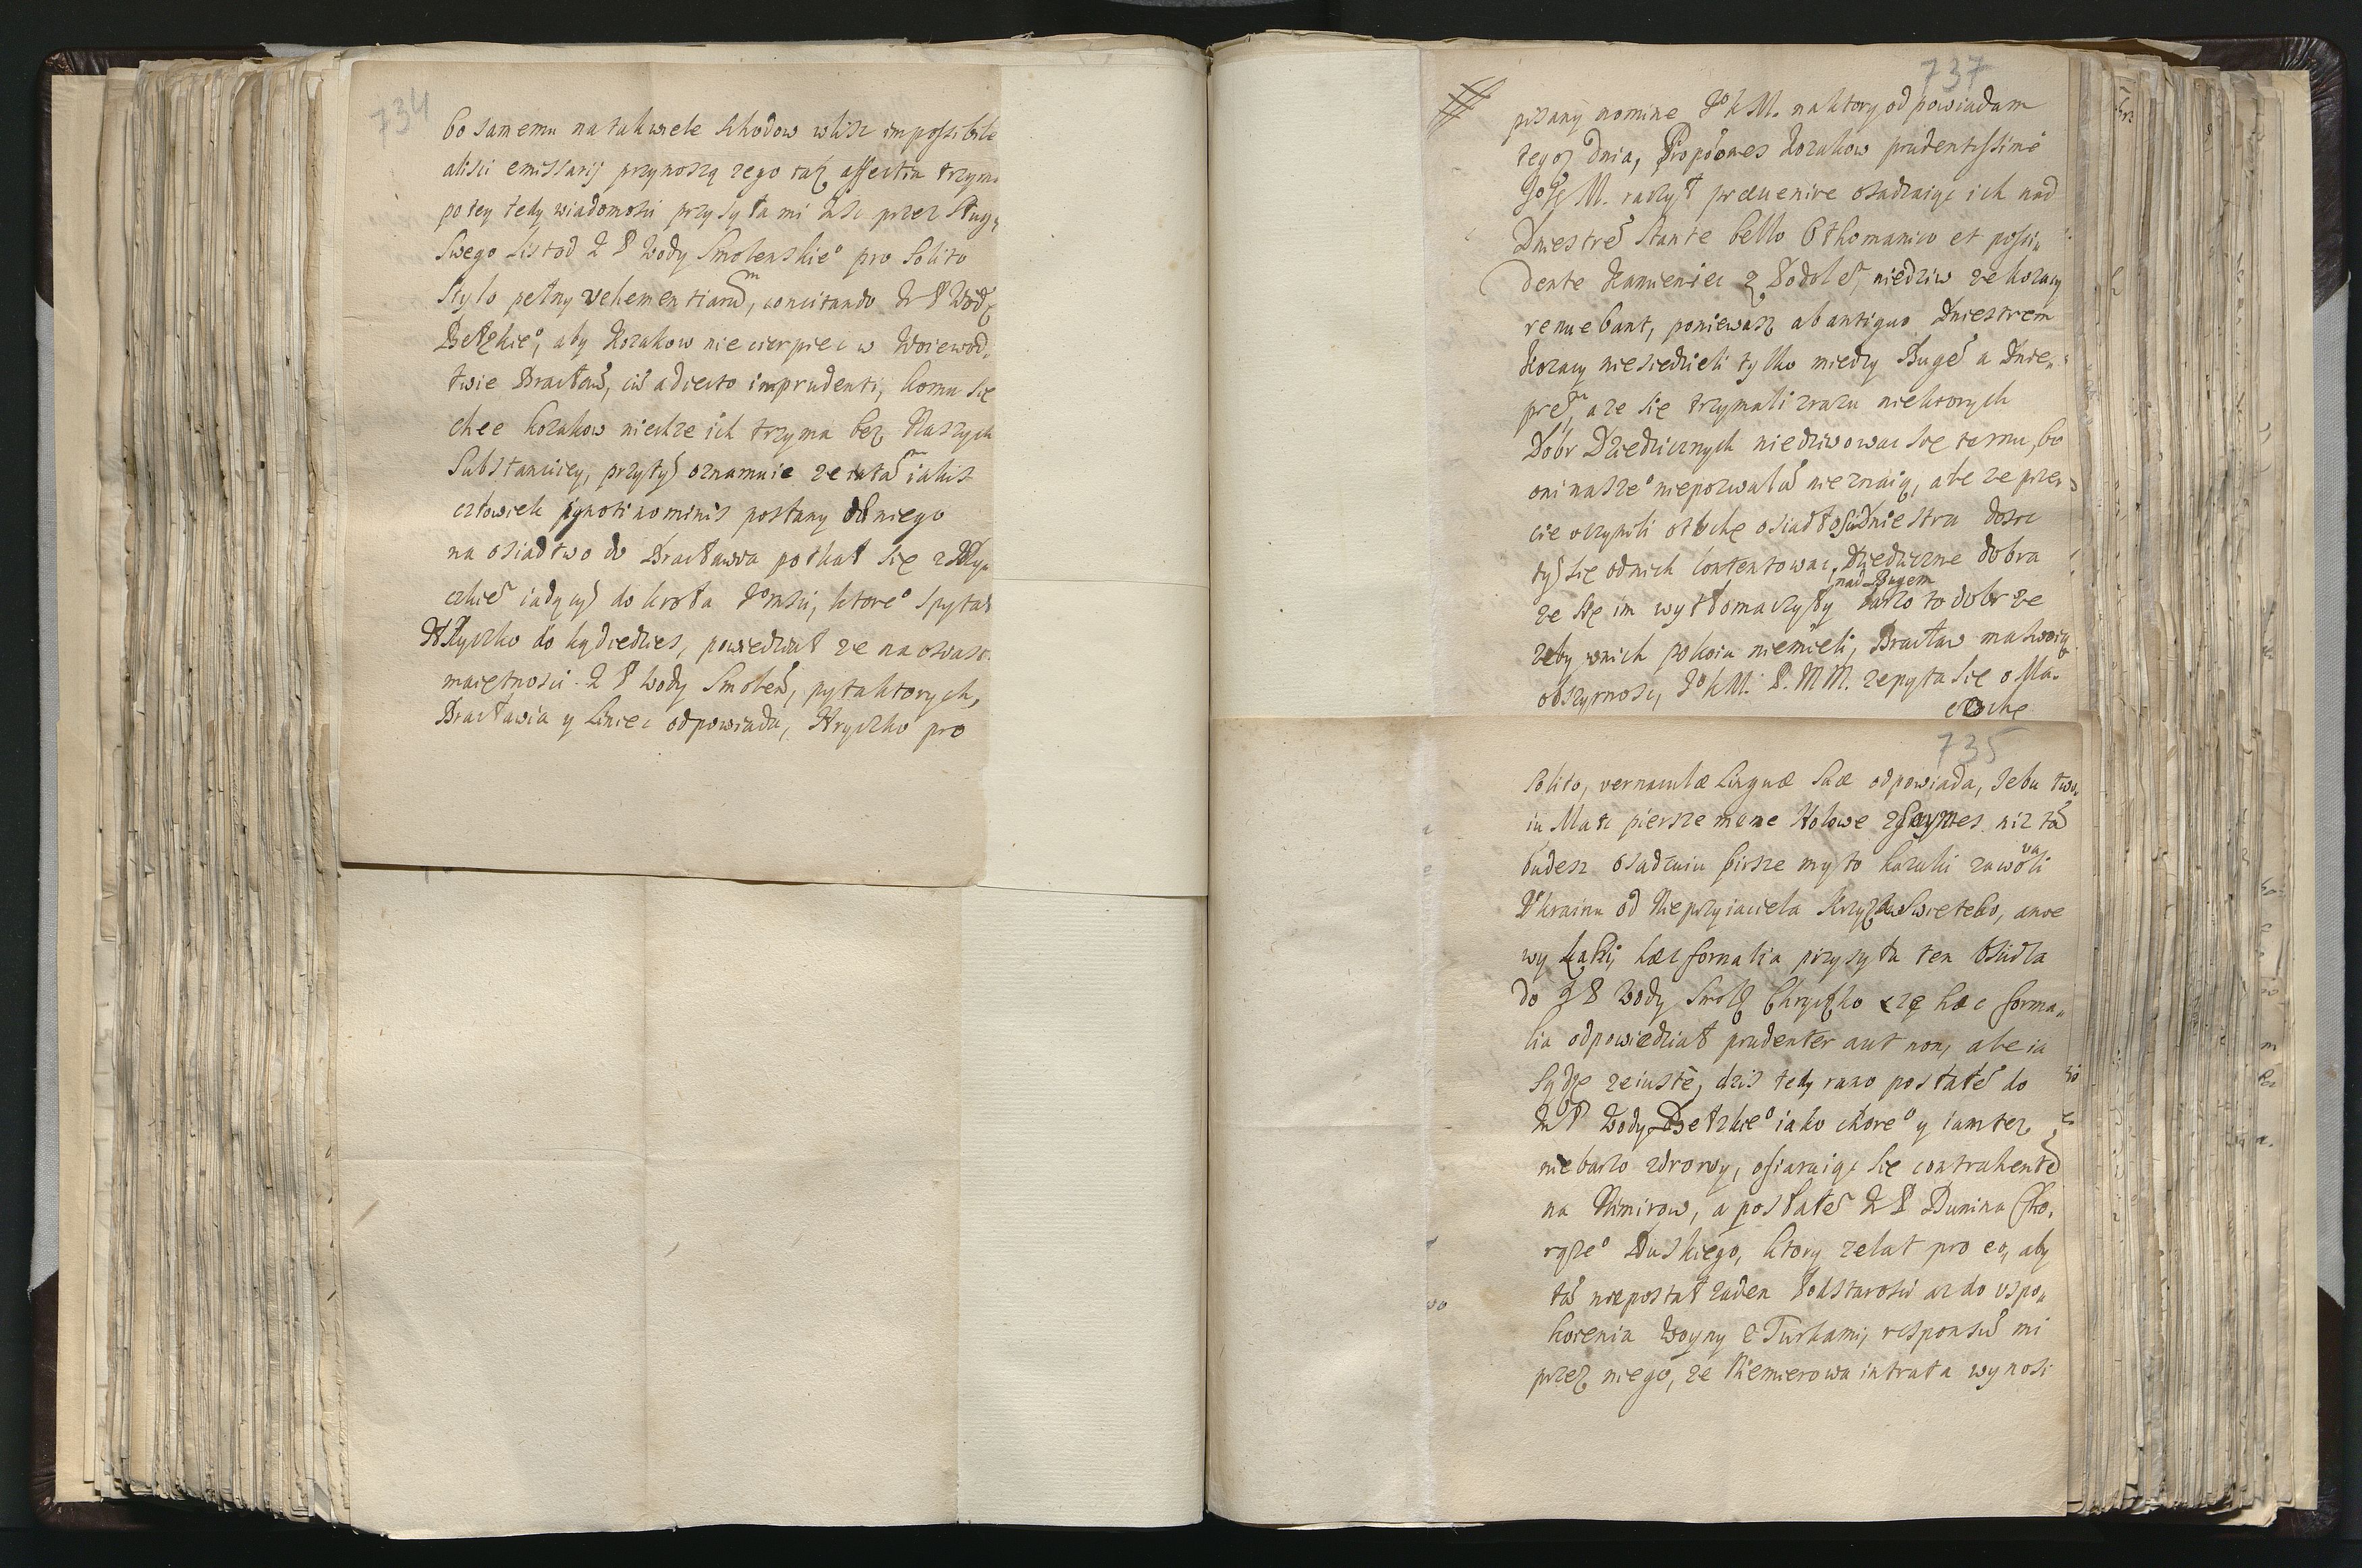 734
bo samemu na tak wiele schodow wliść impossibile
aliści emissarij przynoszą zego taż affectia trzyma
po tey tedy wiadomości przysyła mi
swego list od J P Wody Smolenskie° pro solito
stylo pełny vehementiarum, concitando J P Wodę
Bełzkie°, aby Kozakow nie cierpiec w Woiewodz
twie Bracław, cum adiecto imprudenti, komu się
chce kozakow niechze ich trzyma bez Naszych
Substanciey, przytym oznamuie ze
człowiek ignoti nominis posłany od niego
na osiadtwo do Bracławia potkał się z Hry
czkiem iadącym do ktore° spytał
Hryczko dokąd iedzies, powiedział ze na osiasc
maiętnosci J P Wody Smolen, pyta ktorych,
Bracławia y Liniec odpowiada, Hryczko pro
737
pisany nomine J° K M. na ktory odpowiadam
tegoż dnia, Kozakow prudentissime
J° K M. raczył præuenire osadzaiąc ich nad
Dniestrem stante bello Othomanico et possi
dente Kamieniec z Podolem, niedziw ze kozacy
renuebant, poniewasz ab antiquo Dniestrem
Kozacy niesiedzieli tylko miedzy Bugem a Dnie
prem, a ze się trzymali zrazu niektorych
Dobr Dziedzicznych niedziwowac się temu, bo
oni nasze° niepozwalam nie znaią, ale ze prze
cie uczynili osiadłości Dniestru dosyc
tym się od nich kontentowac, Dziedziczne dobra
nad Bugem
ze się im wytłomaczyły barzo to dobrze
zeby wnich pokoiu niemieli, Bracław ma swoią
obszyrnosc, J° K M. P. M M. ze pyta się o Ma
735
solito, vernaculæ Linguæ suæ odpowiada, Jebu two
iu Mat piersze mene Holowe niz tam
budesz osadzaiu pirsze my to kazaki zawoiova
li
Ukrainu od Nieprzyiaciela Krzyza Swieteho, anie
wy Laszki, hæc formalia przysyła ten Osiadla
do J P Wody Smol Hryczko czę hæc forma
lia odpowiedział prudenter aut non, ale ia
sądze ze iuste, dzis tedy rano posłałem do
J P Wody Bełzkie° iako chore° y iam tez
niebarzo zdrowy, ofiaruiąc się contrahentem
na Nimirow, a posłałem J P Dunina Cho
rąże° Buskiego, ktory zelat pro eo, aby
tam niepostał zaden Podstarosci az do uspo
koienia Woyny z Turkami, responsum mi
przez niego, ze Niemierowa intrata wynosi